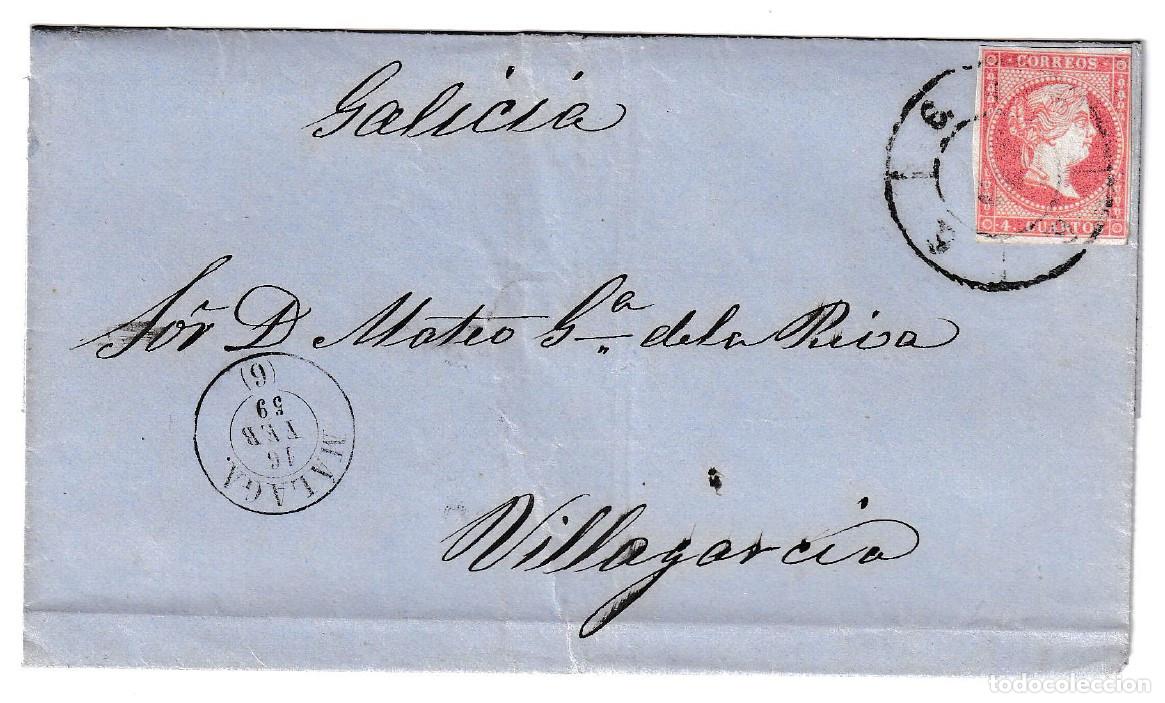 Galicia
CORREOS
4. CUARTOS
Sor D Mateo G.a de la Riva
(6)
59
FEB
16
MÁLAGA.
Villagarcia
todocoleccion